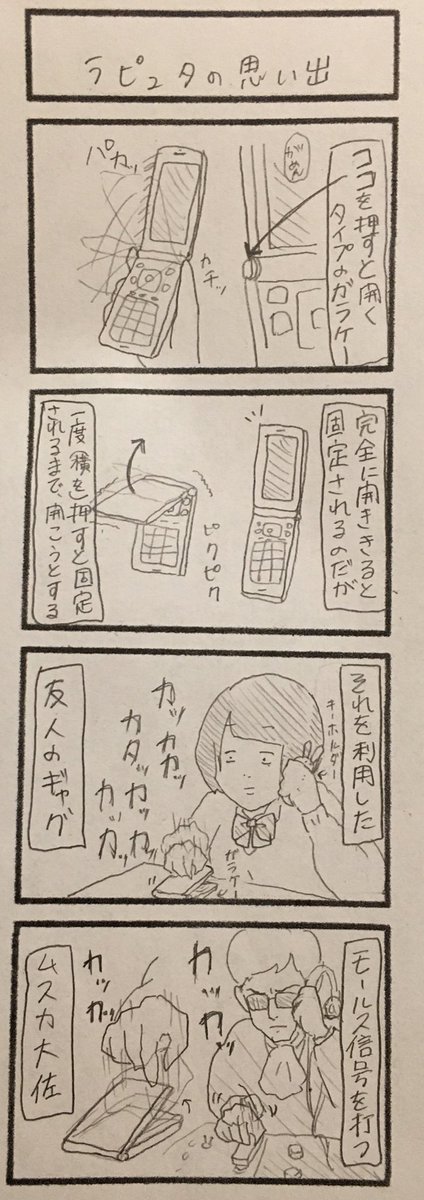 ラピュタの思い出
ココを押すと開く
タイプのガラケー
がめん
パカッ
カチッ
完全に開ききると
固定されるのだが
ピクピク
一度横を押すと固定
されるまで、開こうとする
それを利用した
キーホルダー
カッカカッ
カタッカッ
カッカッ
ガラケー
友人のギャグ
モールス信号を打つ
カッ
カッ
カッ
カッ
ムスカ大佐